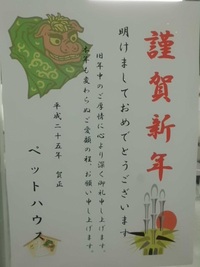 謹賀新年
明けましておめでとうございます
旧年中のご厚情に心より深く御礼申し上げます。
本年も変わらぬご愛顧の程、お願い申し上げます。
平成二十五年 賀正
ペットハウス